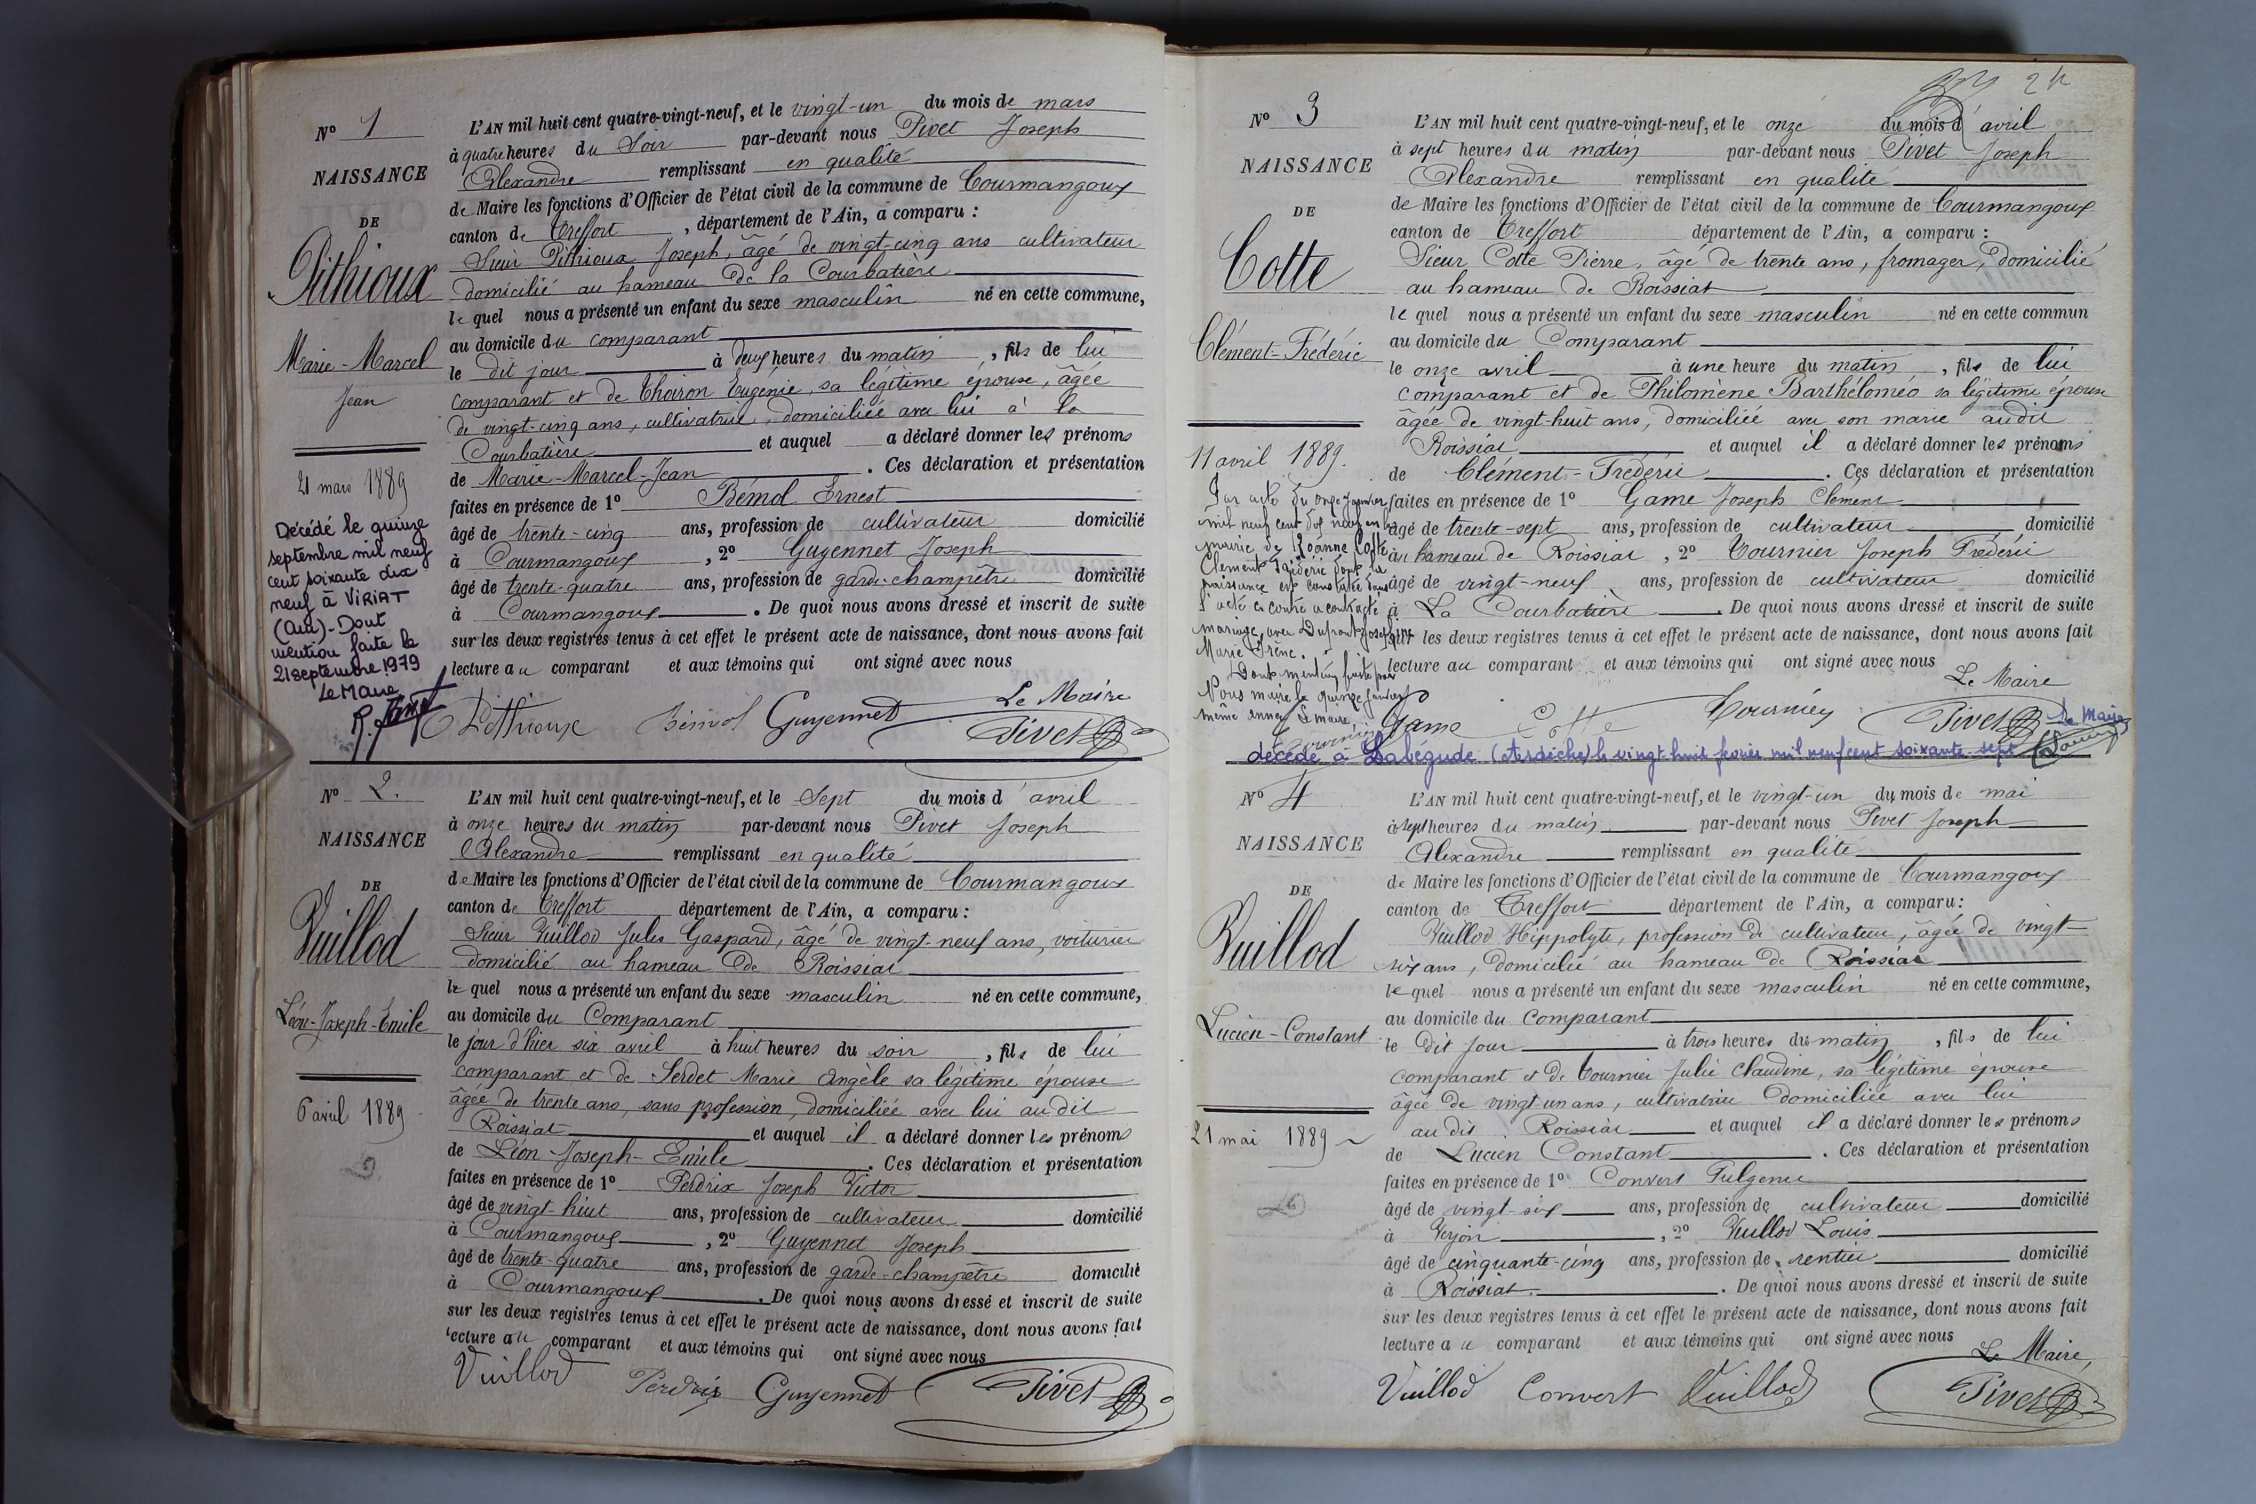 N° 1
NAISSANCE
DE
Pithioux
Marie-Marcel
Jean
21 mars 1889
Décédé le quinze
septembre mil neuf
cent soixante dix
neuf à VIRIAT
(Ain) - Dont
mention faite le
21 septembre 1979
Le Maire
L'AN mil huit cent quatre-vingt-neuf, et le vingt-un du mois de mars
à quatre heures du Soir par-devant nous Pivet Joseph
Alexandre remplissant en qualité
de Maire les fonctions d'Officier de l'état civil de la commune de Courmangoux
canton de Treffort, département de l'Ain, a comparu :
Sieur Pithioux Joseph, âgé de vingt-cinq ans cultivateur
domicilié au hameau De la Courbatière
le quel nous a présenté un enfant du sexe masculin né en cette commune,
au domicile du comparant
le dit jour à deux heures du matin, fils de lui
comparant et de Thoiron Eugénie, sa légitime épouse, âgée
de vingt-cinq ans, cultivatrice, domiciliée avec lui à la
Courbatière et auquel a déclaré donner les prénoms
de Marie-Marcel-Jean. Ces déclaration et présentation
faites en présence de 1° Bémol Ernest
âgé de trente-cinq ans, profession de cultivateur domicilié
à Courmangoux, 2° Guyennet Joseph
âgé de trente-quatre ans, profession de garde-champêtre domicilié
à Courmangoux. De quoi nous avons dressé et inscrit de suite
sur les deux registres tenus à cet effet le présent acte de naissance, dont nous avons fait
lecture au comparant et aux témoins qui ont signé avec nous
Le Maire
Pithioux Bémol Guyennet Pivet
N° 2.
NAISSANCE
DE
Vuillod
Léon-Joseph-Émile
6 avril 1889
L'AN mil huit cent quatre-vingt-neuf, et le Sept du mois d'avril
à onze heures du matin par-devant nous Pivet Joseph
Alexandre remplissant en qualité
de Maire les fonctions d'Officier de l'état civil de la commune de Courmangoux
canton de Treffort département de l'Ain, a comparu :
Sieur Vuillod Jules Gaspard, âgé de vingt-neuf ans, voiturier
domicilié au hameau De Roissiat
le quel nous a présenté un enfant du sexe masculin né en cette commune,
au domicile du Comparant
le jour d'hier six avril à huit heures du soir, fils de lui
comparant et de Serdet Marie Angèle sa légitime épouse
âgée de trente ans, sans profession, domiciliée avec lui au dit
Roissiat et auquel il a déclaré donner les prénoms
de Léon-Joseph-Emile. Ces déclaration et présentation
faites en présence de 1° Perdrix Joseph Victor
âgé de vingt-huit ans, profession de cultivateur domicilié
à Courmangoux, 2° Guyennet Joseph
âgé de trente-quatre ans, profession de garde-champêtre domicilié
à Courmangoux. De quoi nous avons dressé et inscrit de suite
sur les deux registres tenus à cet effet le présent acte de naissance, dont nous avons fait
lecture au comparant et aux témoins qui ont signé avec nous
Vuillod Perdrix Guyennet Pivet
N° 3
NAISSANCE
DE
Cotte
Clément-Frédéric
11 avril 1889.
Par acte du onze Janvier
mil neuf cent dix neuf en la
mairie de Roanne Cotte
Clément Frédéric dont la
naissance est constatée dans
l'acte ci contre a contracté
mariage avec Dufrant Joséphine
Marie Irène.
Dont mention faite par
Nous maire le quinze janvier
même année Le maire
L'AN mil huit cent quatre-vingt-neuf, et le onze du mois d'avril
à sept heures du matin par-devant nous Pivet Joseph
Alexandre remplissant en qualité
de Maire les fonctions d'Officier de l'état civil de la commune de Courmangoux
canton de Treffort département de l'Ain, a comparu :
Sieur Cotte Pierre, âgé de trente ans, fromager, Domicilié
au hameau de Roissiat
le quel nous a présenté un enfant du sexe masculin né en cette commun
au domicile du Comparant
le onze avril à une heure du matin, fils de lui
comparant et de Philomène Barthéloméo sa légitime épouse
âgée de vingt-huit ans, domiciliée avec son mari audit
Roissiat et auquel il a déclaré donner les prénoms
de Clément-Frédéric. Ces déclaration et présentation
faites en présence de 1° Game Joseph Clément
âgé de trente-sept ans, profession de cultivateur domicilié
au hameau de Roissiat, 2° Tournier Joseph Frédéric
âgé de vingt-neuf ans, profession de cultivateur domicilié
à La Courbatière. De quoi nous avons dressé et inscrit de suite
sur les deux registres tenus à cet effet le présent acte de naissance, dont nous avons fait
lecture au comparant et aux témoins qui ont signé avec nous
Le Maire
Game Cotte Tournier Pivet Le Maire
décédé à Labégude (Ardèche) le vingt huit février mil neuf cent soixante-sept
N° 4
NAISSANCE
DE
Vuillod
Lucien-Constant
21 mai 1889
L'AN mil huit cent quatre-vingt-neuf, et le vingt-un du mois de mai
à sept heures du matin par-devant nous Pivet Joseph
Alexandre remplissant en qualité
de Maire les fonctions d'Officier de l'état civil de la commune de Courmangoux
canton de Treffort département de l'Ain, a comparu :
Vuillod Hippolyte, profession de cultivateur, âgée de vingt-
six ans, Domicilié au hameau De Roissiat
le quel nous a présenté un enfant du sexe masculin né en cette commune,
au domicile du comparant
le Dit jour à trois heures du matin, fils de lui
comparant et de Tournier Julie Claudine, sa légitime épouse
âgée de vingt-un ans, cultivatrice Domiciliée avec lui
au dit Roissiat et auquel il a déclaré donner les prénoms
de Lucien Constant. Ces déclaration et présentation
faites en présence de 1° Convert Fulgence
âgé de vingt-six ans, profession de cultivateur domicilié
à Verjon, 2° Vuillod Louis
âgé de cinquante-cinq ans, profession de rentier domicilié
à Roissiat. De quoi nous avons dressé et inscrit de suite
sur les deux registres tenus à cet effet le présent acte de naissance, dont nous avons fait
lecture au comparant et aux témoins qui ont signé avec nous
Le Maire
Vuillod Convert Vuillod Pivet